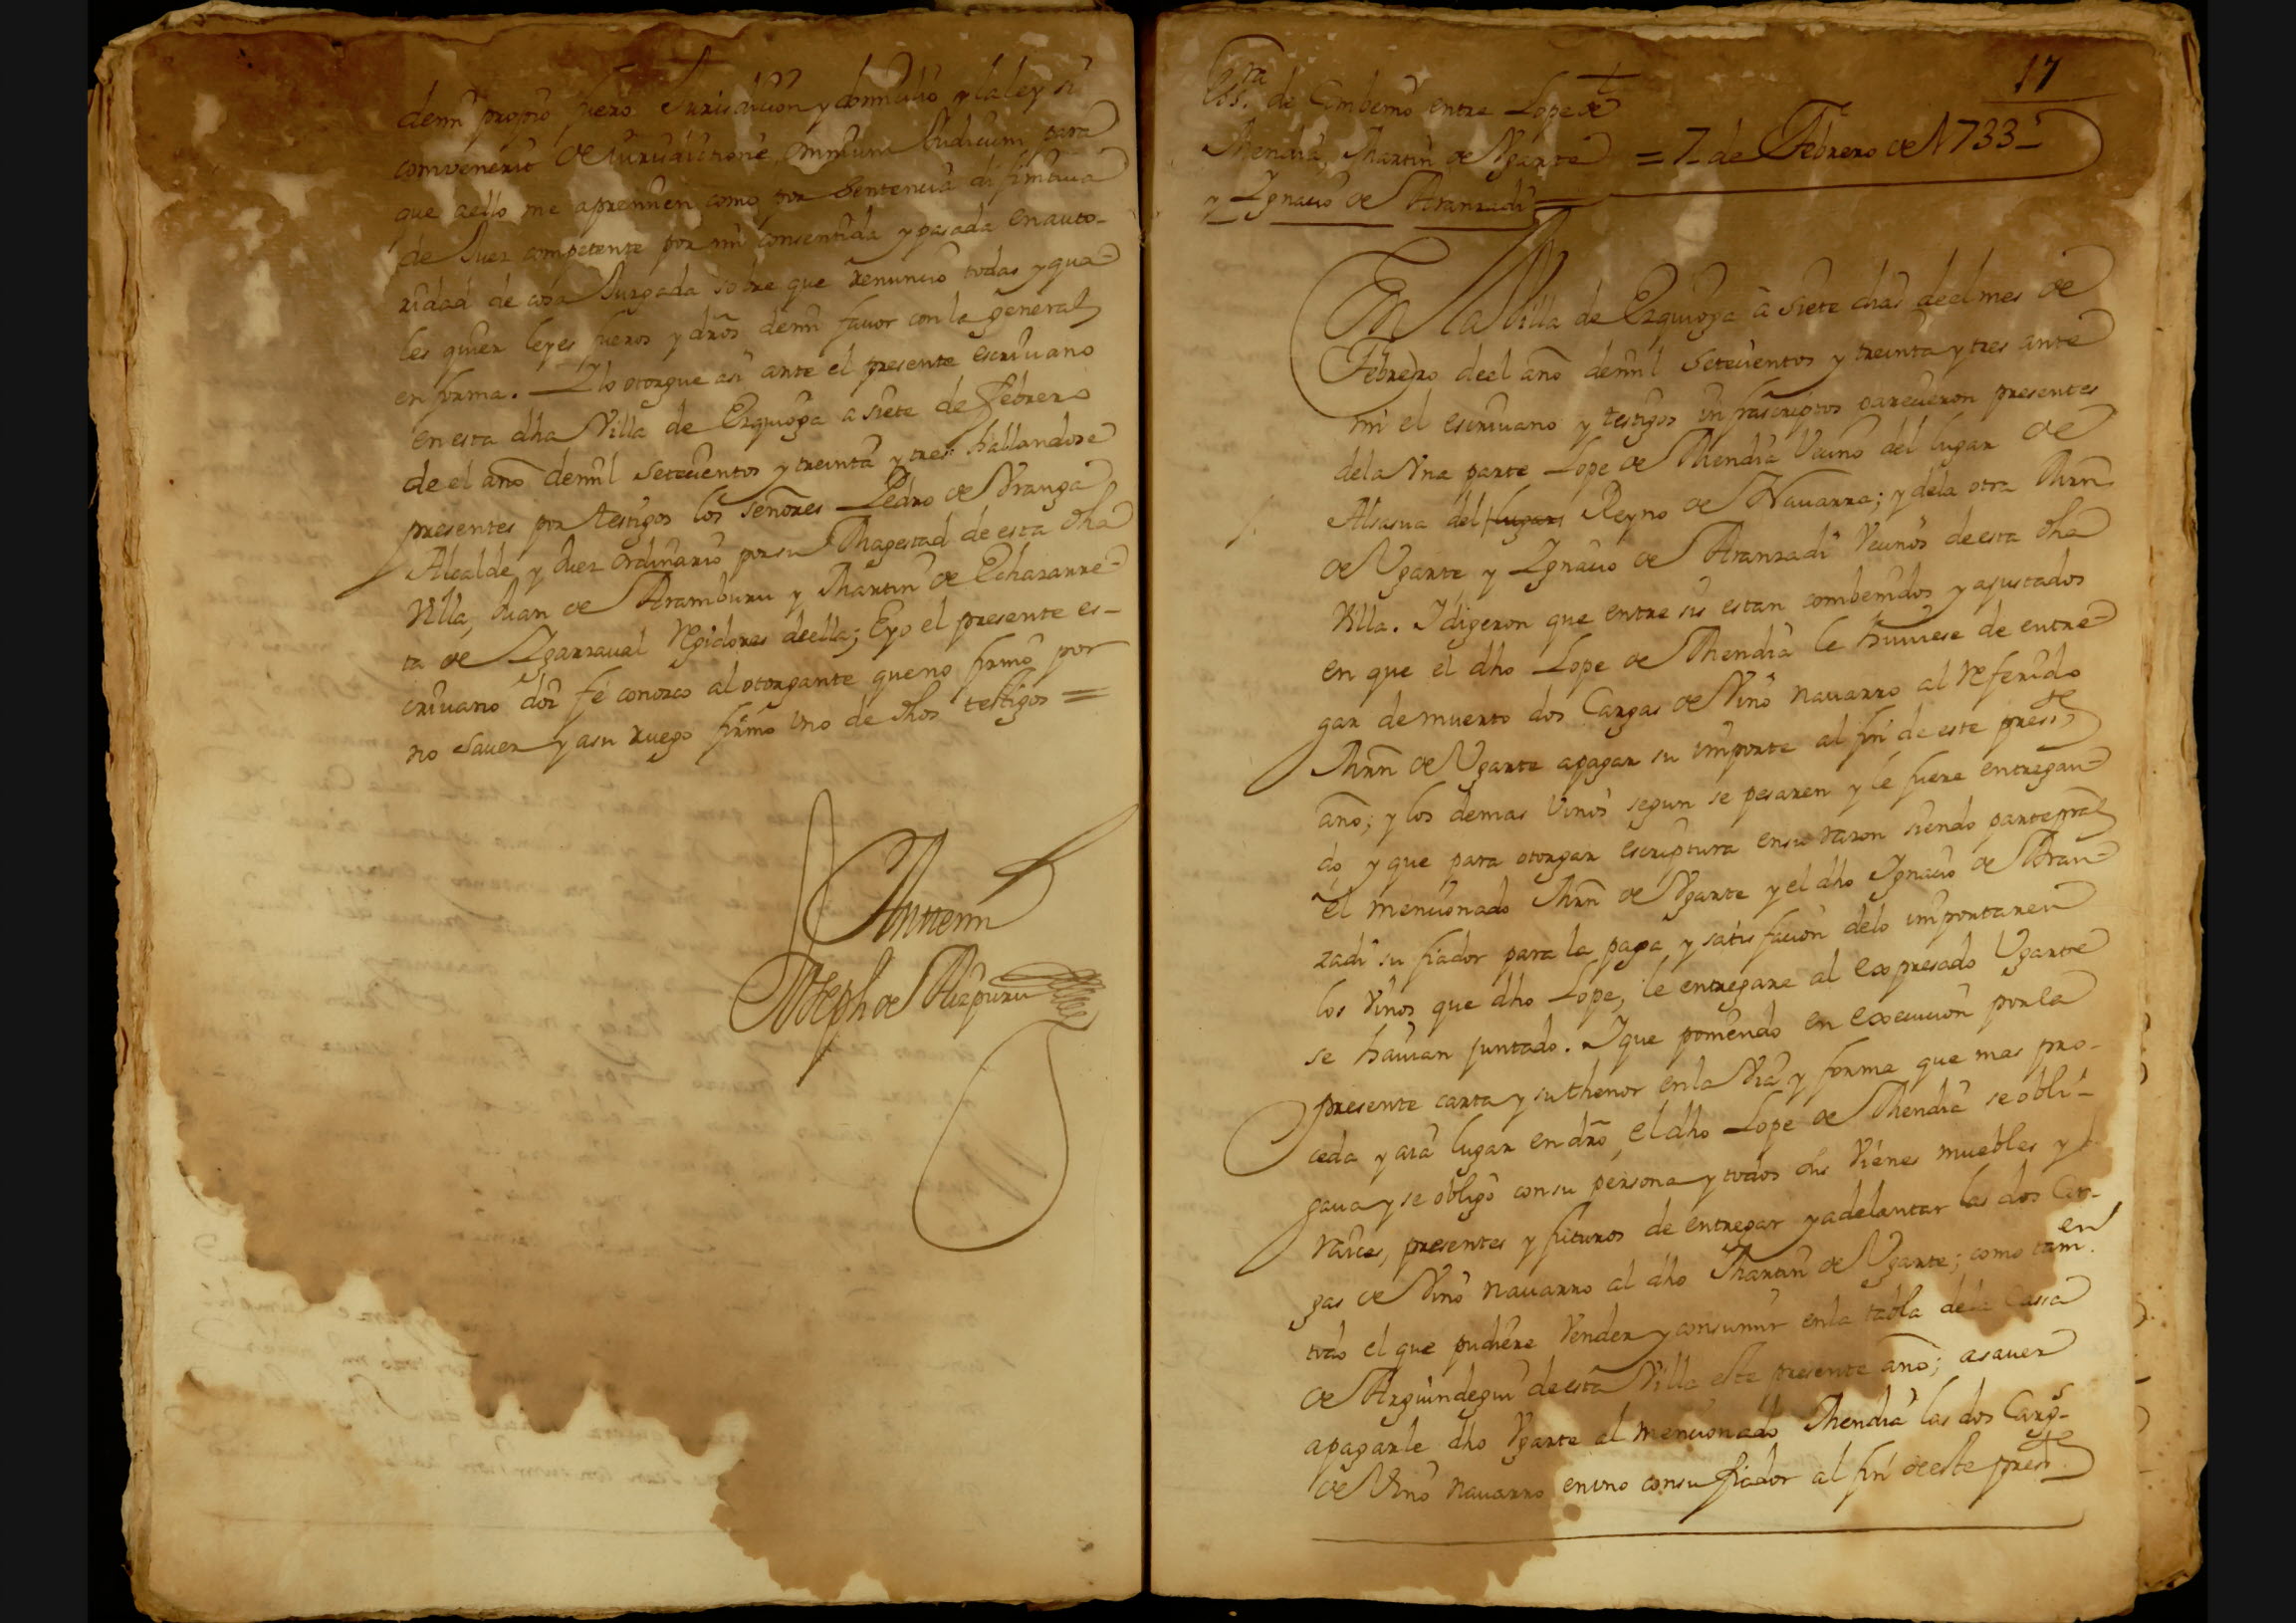 demi propio fuero Jurisdicion y domicilio y la ley si
convenerit de iurisdictione omnium Judicum para
que aello me apremien como por Sentencia difinitiva
de Juez competente por mi consentida y pasada en auto-
ridad de cosa Juzgada sobre que renuncio todas y qua-
les quier leyes fueros y dros. demi favor con la general
en forma. Y lo otorgue asi ante el presente escriuano
en esta dha Villa de Ezquioga a siete de Febrero
de el año demil Setecientos y treinta y tres hallandose
presentes por testigos los señores Pedro de Vranga
Alcalde y Juez Ordinario por su Magestad de esta dha
Villa, Juan de Aramburu y Martin de Echazarre-
ta de Igarzaual Regidores deella; Eyo el presente es-
criuano doi fé conozco al otorgante que no firmó por
no Sauer y asu ruego firmó Uno de dhos testigos =
Antemi
Joseph de Aizpuru
17
Essra. de Combenio entre Lope de
Mendia, Martin de Vgarte = 7 de Febrero de 1733
y Ignacio de Aranzadi =
En la Villa de Ezquioga à siete dias deel mes de
Febrero deel año demil Setecientos y treinta y tres ante
mi el escriuano y testigos infrascriptos parecieron presentes
dela Vna parte Lope de Mendia Vecino del lugar de
Alsasua del lugar Reyno de Nauarra; y dela otra Mrn
de Vgarte y Ignacio de Aranzadi Vecinos de esta dha
Villa. I digeron que entre sis estan combenidos y ajustados
en que el dho Lope de Mendia le huuiese de entre-
gar de muerto dos Cargas de Vino nauarro al referido
Mrn de Vgarte apagar su importe al fin de este preste
año; y los demas Vinos segun se pesaren y le fuere entregan-
do y que para otorgar escriptura ensu razon siendo parte pral
el mencionado Mrn de Vgarte y el dho Ignacio de Aran-
zadi su fiador para la paga y satisfacion delo importaren
los Vinos que dho Lope, le entregare al expresado Vgarte
se hauian juntado. I que poniendo en execucion por la
presente carta y su thenor en la Via y forma que mas pro-
ceda y aia lugar en dro, el dho Lope de Mendia se obli-
gaua y se obligó con su persona y todos sus Vienes muebles y
raices, presentes y futuros de entregar y adelantar las dos Car-
gas de Vino nauarro al dho Martin de Vgarte; como tamen.
todo el que pudiere Vender y consumir en la tabla dela Cassa
de Arguindegui de esta Villa este presente año; asauer
apagarle dho Vgarte al mencionado Mendia las dos Cargs
de Vino nauarro en vno consu fiador al fin de este preste